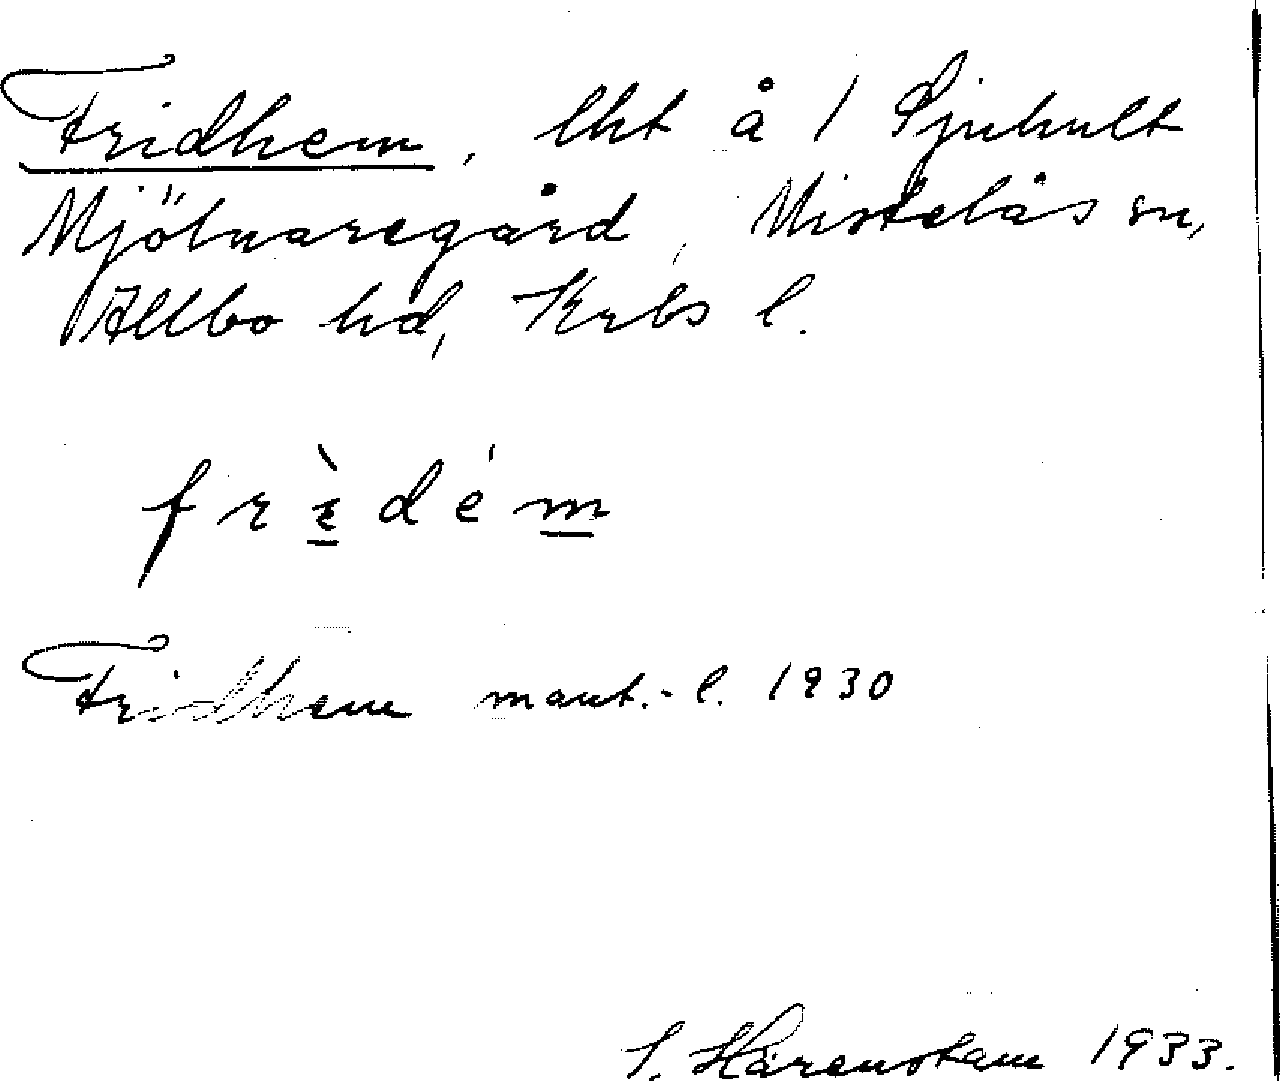 Fridhem, lht å 1 Sjuhult
Mjölnaregård, Mistelås sn,
Allbo hd, Krbs l.
frὲdém
Fridhem mant.-l. 1930
S. Härenstam 1933.